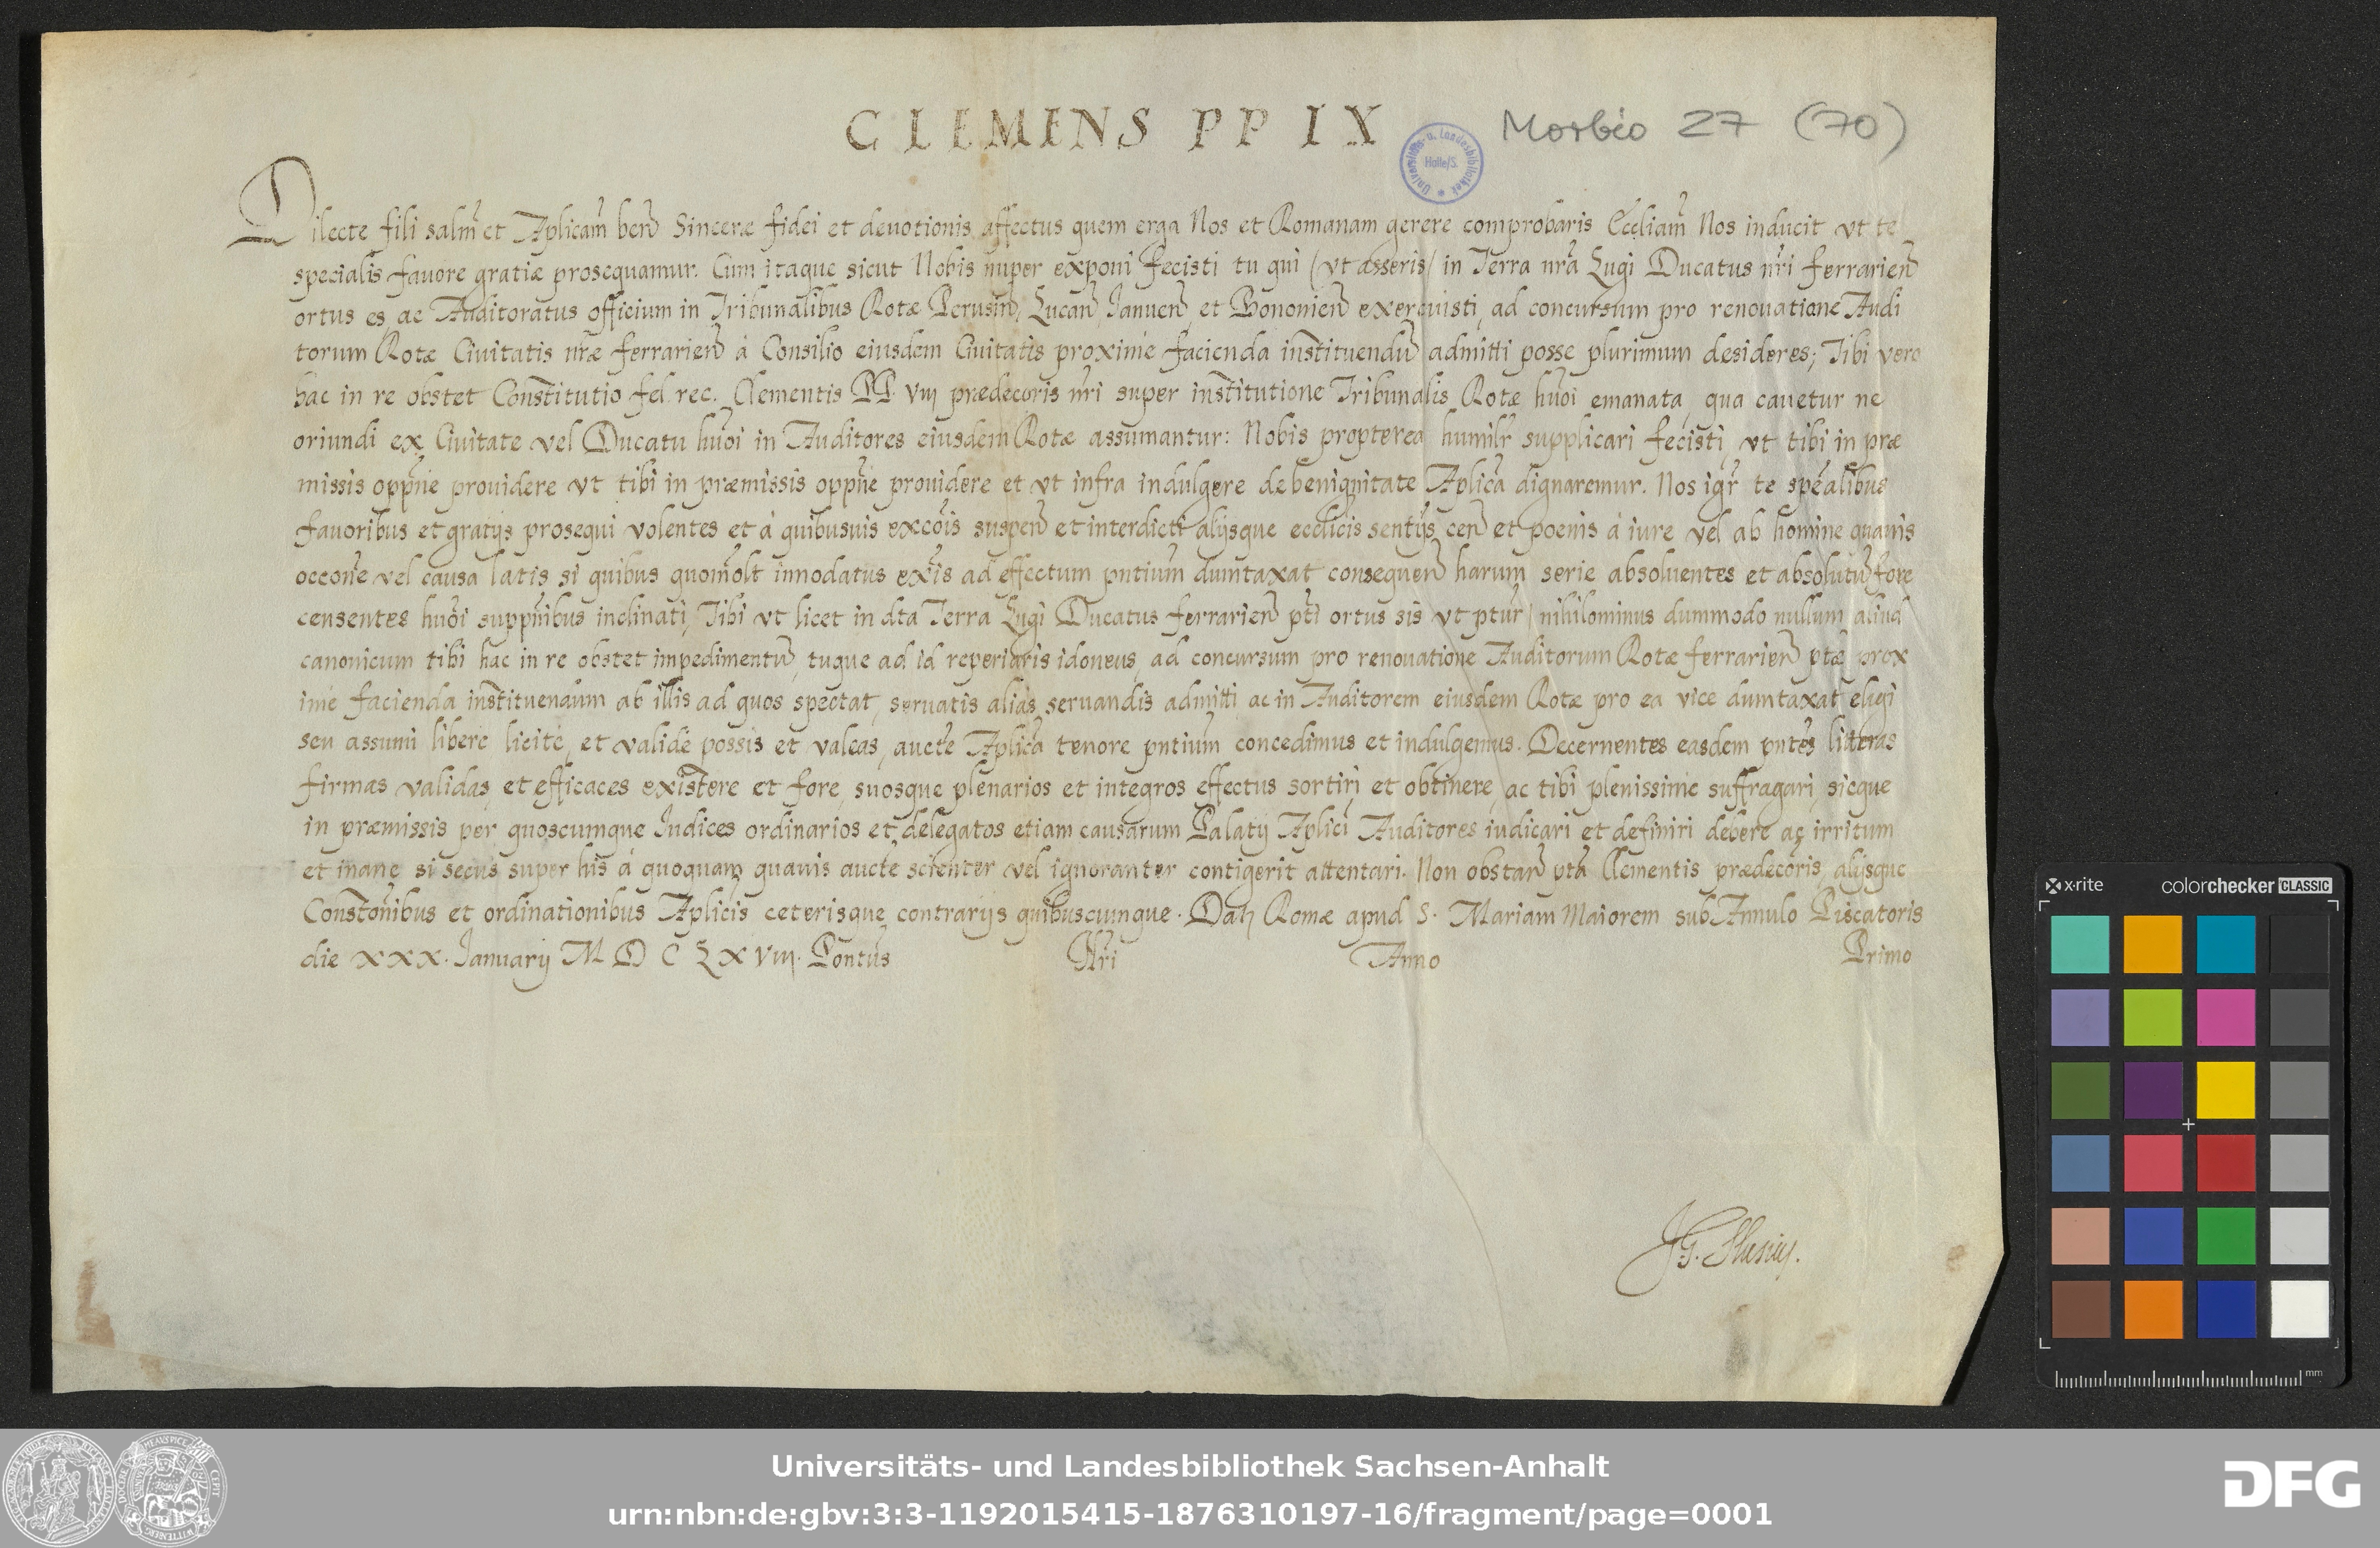 CLEMENS PP IX
Morbio 27 (70)
Universitäts- u. Landesbibliothek Halle/S.
Dilecte fili salm̃ et Aplicam̃ beñ Sinceræ fidei et deuotionis affectus quem erga Nos et Romanam gerere comprobaris Eccliam̃ Nos inducit vt te
specialis fauore gratiæ prosequamur. Cum itaque sicut Nobis nuper exponi fecisti tu qui (vt asseris) in Terra nr̃a Lugi Ducatus nr̃i ferrarieñ
ortus es, ac Auditoratus officium in Tribunalibus Rotæ Perusiñ, Lucañ, Janueñ, et Bononieñ exercuisti, ad concursum pro renouatione Audi
torum Rotæ Ciuitatis nr̃æ ferrarieñ à Consilio eiusdem Ciuitatis proximè facienda instituendũ admitti posse plurimum desideres; Tibi vero
hac in re obstet Constitutio fel. rec. Clementis PP. VIII prædec̃oris nr̃i super institutione Tribunalis Rotæ hũoi emanata, qua cauetur ne
oriundi ex Ciuitate vel Ducatu hũoi in Auditores eiusdem Rotæ assumantur: Nobis propterea humilr̃ supplicari fecisti, vt tibi in præ
missis oppñe prouidere vt tibi in præmissis oppñe prouidere et vt infra indulgere de benignitate Aplicã dignaremur. Nos igr̃ te spẽalibus
fauoribus et gratijs prosequi volentes et à quibusuis excõis suspeñ et interdicti alijsque ecclicis sentijs ceñ et poenis à iure vel ab homine quauis
occoñe vel causa latis si quibus quom̃olt innodatus ex̃is ad effectum pñtium dumtaxat consequeñ harum serie absoluentes et absolutũ fore
censentes hũoi suppñibus inclinati, Tibi vt licet in dt̃a Terra Lugi Ducatus ferrarieñ pt̃i ortus sis vt pt̃ur / nihilominus dummodo nullum aliud
canonicum tibi hac in re obstet impedimentũ, tuque ad id reperiaris idoneus, ad concursum pro renouatione Auditorum Rotæ ferrarieñ pt̃æ prox
imè facienda instituendum ab illis ad quos spectat, seruatis aliàs seruandis admitti, ac in Auditorem eiusdem Rotæ pro ea vice dumtaxat elegi
seu assumi liberè licitè, et validè possis et valeas, aucte Aplicã tenore pñtium concedimus et indulgemus. Decernentes easdem pñtes litteras
firmas validas, et efficaces existere et fore, suosque plenarios et integros effectus sortiri et obtinere, ac tibi plenissimè suffragari, sicque
in præmissis per quoscumque Iudices ordinarios et delegatos etiam causarum Palatij Aplici Auditores iudicari et definiri debere ac irritum
et inane si secus super his à quoquam quauis aucte scienter vel ignoranter contigerit attentari. Non obstañ pt̃a Clementis prædec̃oris, alijsque
Constoñibus et ordinationibus Aplicis ceterisque contrarijs quibuscumque. Datz Romæ apud S. Mariam Maiorem sub Annulo Piscatoris
die XXX. Ianuarij MDCLXVIII. Pontũs Nr̃i Anno Primo
JG. Slusius.
x-rite colorchecker CLASSIC
mm
Universitäts- und Landesbibliothek Sachsen-Anhalt
urn:nbn:de:gbv:3:3-1192015415-1876310197-16/fragment/page=0001
DFG